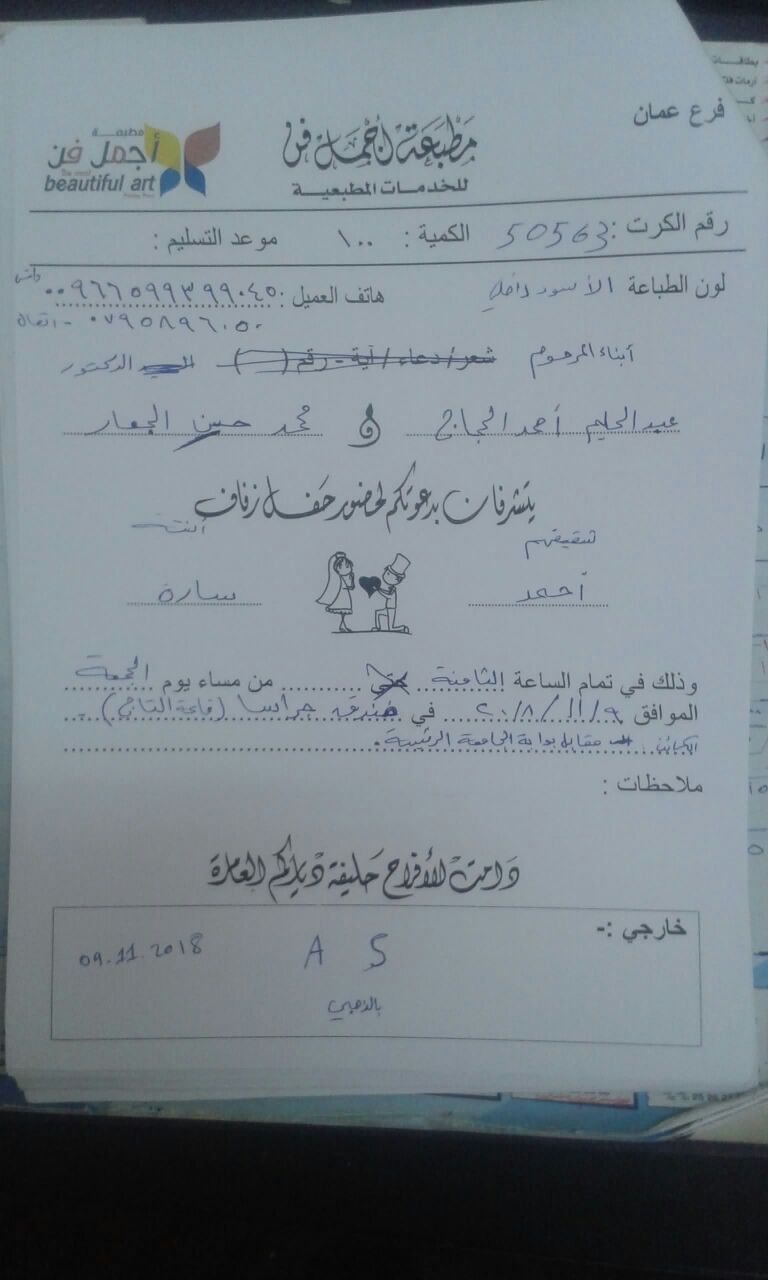 فرع عمان
مطبعة أجمل فن
للخدمات المطبعية
مطبعة
أجمل فن
beautiful art
رقم الكرت : 50563 الكمية : ١٠٠ موعد التسليم :
لون الطباعة الأسود داخلي هاتف العميل : ٠٠٩٦٦٥٩٩٣٩٩٠٤٥ واتس
٠٧٩٥٨٩٦٠٥٠ - اتصال
أبناء المرحوم شعر / دعاء / آية - رقم ( ) الدكتور
عبد الحليم أحمد الحجاج و محمد حسن الجعار
يتشرفان بدعوتكم لحضور حفل زفاف
شقيقهم ابنته
أحمد سارة
وذلك في تمام الساعة الثامنة حتى من مساء يوم الجمعة
الموافق ٢٠١٨/١١/٩ في فندق جراسا (قاعة التاج) -
مقابل بوابة الجامعة الرئيسية .
ملاحظات :
دامت الأفراح حليفة دياركم العامرة
خارجي :-
09.11.2018 A S
بالذهبي